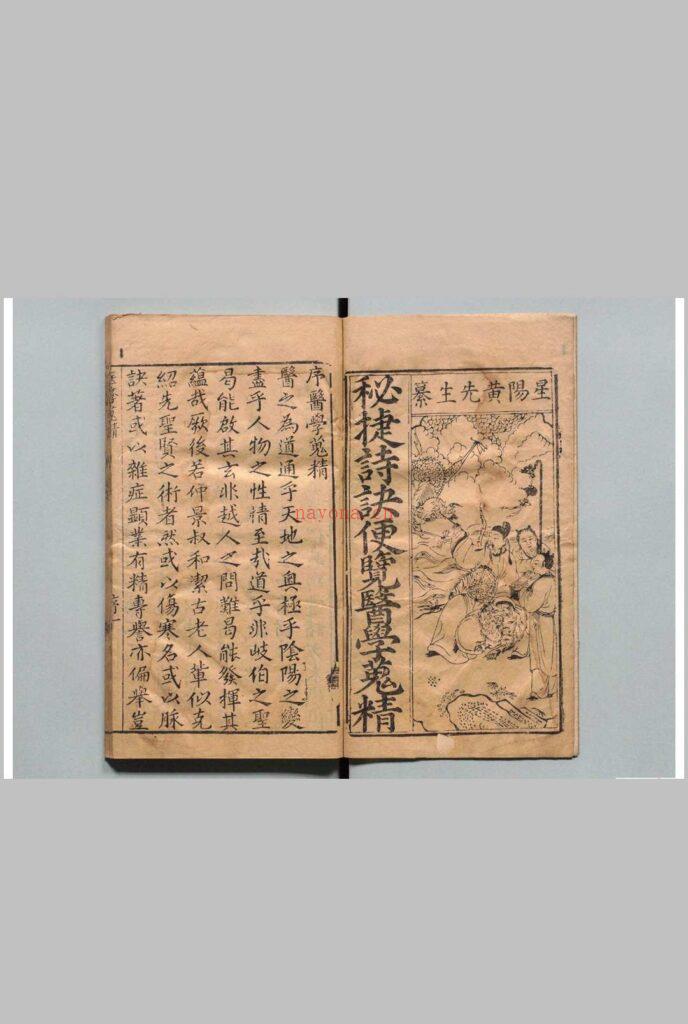 星陽黃先生纂
秘捷詩訣便覽醫學蒐精
序醫學蒐精
醫之為道通乎天地之奧極乎陰陽之變
盡乎人物之性精至哉道乎非岐伯之聖
曷能啟其玄非越人之問難曷能發揮其
蘊哉厥後若仲景叔和潔古老人輩似克
紹先聖賢之術者然或以傷寒名或以脉
訣著或以雜症顯業有精專譽亦偏舉豈